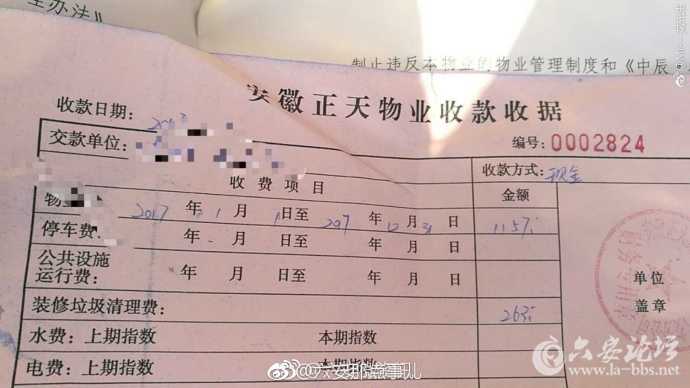 全办法》
制止违反本物业的物业管理制度和《中辰
安徽正天物业收款收据
收款日期：
编号：0002824
交款单位：
收款方式：现金
收费项目
金额
2017年1月1日至2017年12月31日 1157
停车费 年 月 日至 年 月 日
公共设施
运行费： 年 月 日至 年 月 日
单位
盖章
装修垃圾清理费： 263
水费：上期指数 本期指数
电费：上期指数 本期指数
@六安那些事儿
六安论坛
www.la-bbs.net